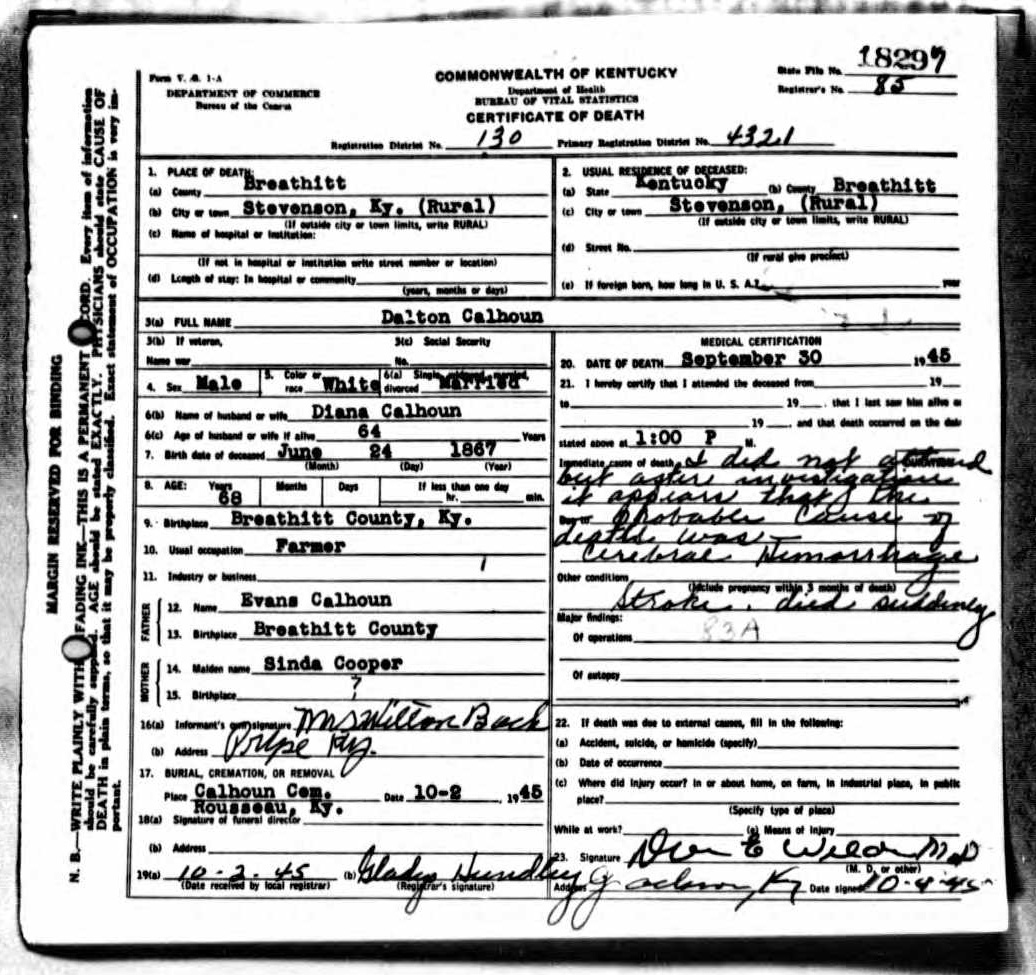 18297
Form V. S. 1-A
DEPARTMENT OF COMMERCE
Bureau of the Census
COMMONWEALTH OF KENTUCKY
Department of Health
BUREAU OF VITAL STATISTICS
CERTIFICATE OF DEATH
State File No.
Registrar's No. 85
Registration District No. 130 Primary Registration District No. 4321
MARGIN RESERVED FOR BINDING
N. B.—WRITE PLAINLY WITH FADING INK—THIS IS A PERMANENT CORD. Every item of information
should be carefully supp. AGE should be stated EXACTLY. PHYSICIANS should state CAUSE OF
DEATH in plain terms, so that it may be properly classified. Exact statement of OCCUPATION is very im-
portant.
1. PLACE OF DEATH:
(a) County Breathitt
(b) City or town Stevenson, Ky. (Rural)
(If outside city or town limits, write RURAL)
(c) Name of hospital or institution:
(If not in hospital or institution write street number or location)
(d) Length of stay: In hospital or community
(years, months or days)
2. USUAL RESIDENCE OF DECEASED:
(a) State Kentucky (b) County Breathitt
(c) City or town Stevenson, (Rural)
(If outside city or town limits, write RURAL)
(d) Street No.
(If rural give precinct)
(e) If foreign born, how long in U. S. A.? year
3(a) FULL NAME Dalton Calhoun
3(b) If veteran,
Name war
3(c) Social Security
No.
4. Sex Male 5. Color or race White 6(a) Single, widowed, married, divorced Married
6(b) Name of husband or wife Diana Calhoun
6(c) Age of husband or wife if alive 64 Years
7. Birth date of deceased June 24 1867
(Month) (Day) (Year)
8. AGE: Years 68 Months Days If less than one day
hr. min.
9. Birthplace Breathitt County, Ky.
10. Usual occupation Farmer
11. Industry or business
FATHER
12. Name Evans Calhoun
13. Birthplace Breathitt County
MOTHER
14. Maiden name Sinda Cooper
15. Birthplace ?
16(a) Informant's own signature Mrs Wilton Bach
(b) Address Ky.
17. BURIAL, CREMATION, OR REMOVAL
Place Calhoun Cem. Date 10-2, 1945
Rousseau, Ky.
18(a) Signature of funeral director
(b) Address
19(a) 10-2-45 (b) Gladys Hundley
(Date received by local registrar) (Registrar's signature)
MEDICAL CERTIFICATION
20. DATE OF DEATH September 30 1945
21. I hereby certify that I attended the deceased from 19
to 19, that I last saw him alive on
19, and that death occurred on the date
stated above at 1:00 P M.
Immediate cause of death I did not attend
but after investigation
it appears that the
Due to probable cause of
death was—
Cerebral Hemorrhage
Other conditions
(Include pregnancy within 3 months of death)
Stroke. died suddenly
Major findings:
Of operations 83A
Of autopsy
22. If death was due to external causes, fill in the following:
(a) Accident, suicide, or homicide (specify)
(b) Date of occurrence
(c) Where did injury occur? In or about home, on farm, in industrial place, in public
place?
(Specify type of place)
While at work? (e) Means of Injury
23. Signature M.D
(M. D. or other)
Address Jackson, Ky Date signed 10-4-45